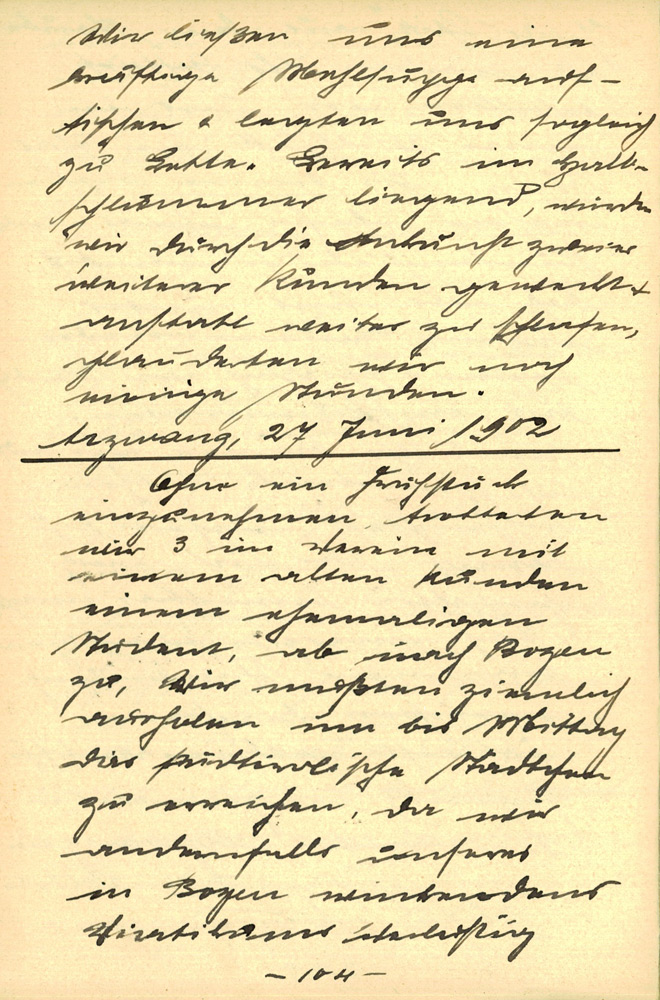 Wir ließen uns eine
kräftige Mehlsuppe auf-
tischen & legten uns sogleich
zu Bette. Bereits im Halb-
schlummer liegend, wurden
wir durch die Ankunft zweier
weiterer Kunden geweckt &
anstatt weiter zu schlafen,
plauderten wir noch
einige Stunden.
Atzwang, 27 Juni 1902
Ohne ein Frühstück
einzunehmen, trotteten
wir 3 im Verein mit
einem alten Kunden
einem ehemaligen
Student, ab nach Bozen
zu, Wir mußten ziemlich
ausholen um bis Mittag
das südtirolische Städtchen
zu erreichen, da wir
andernfalls unseres
in Bozen winkendens
Viatikums verlustig
- 104 -